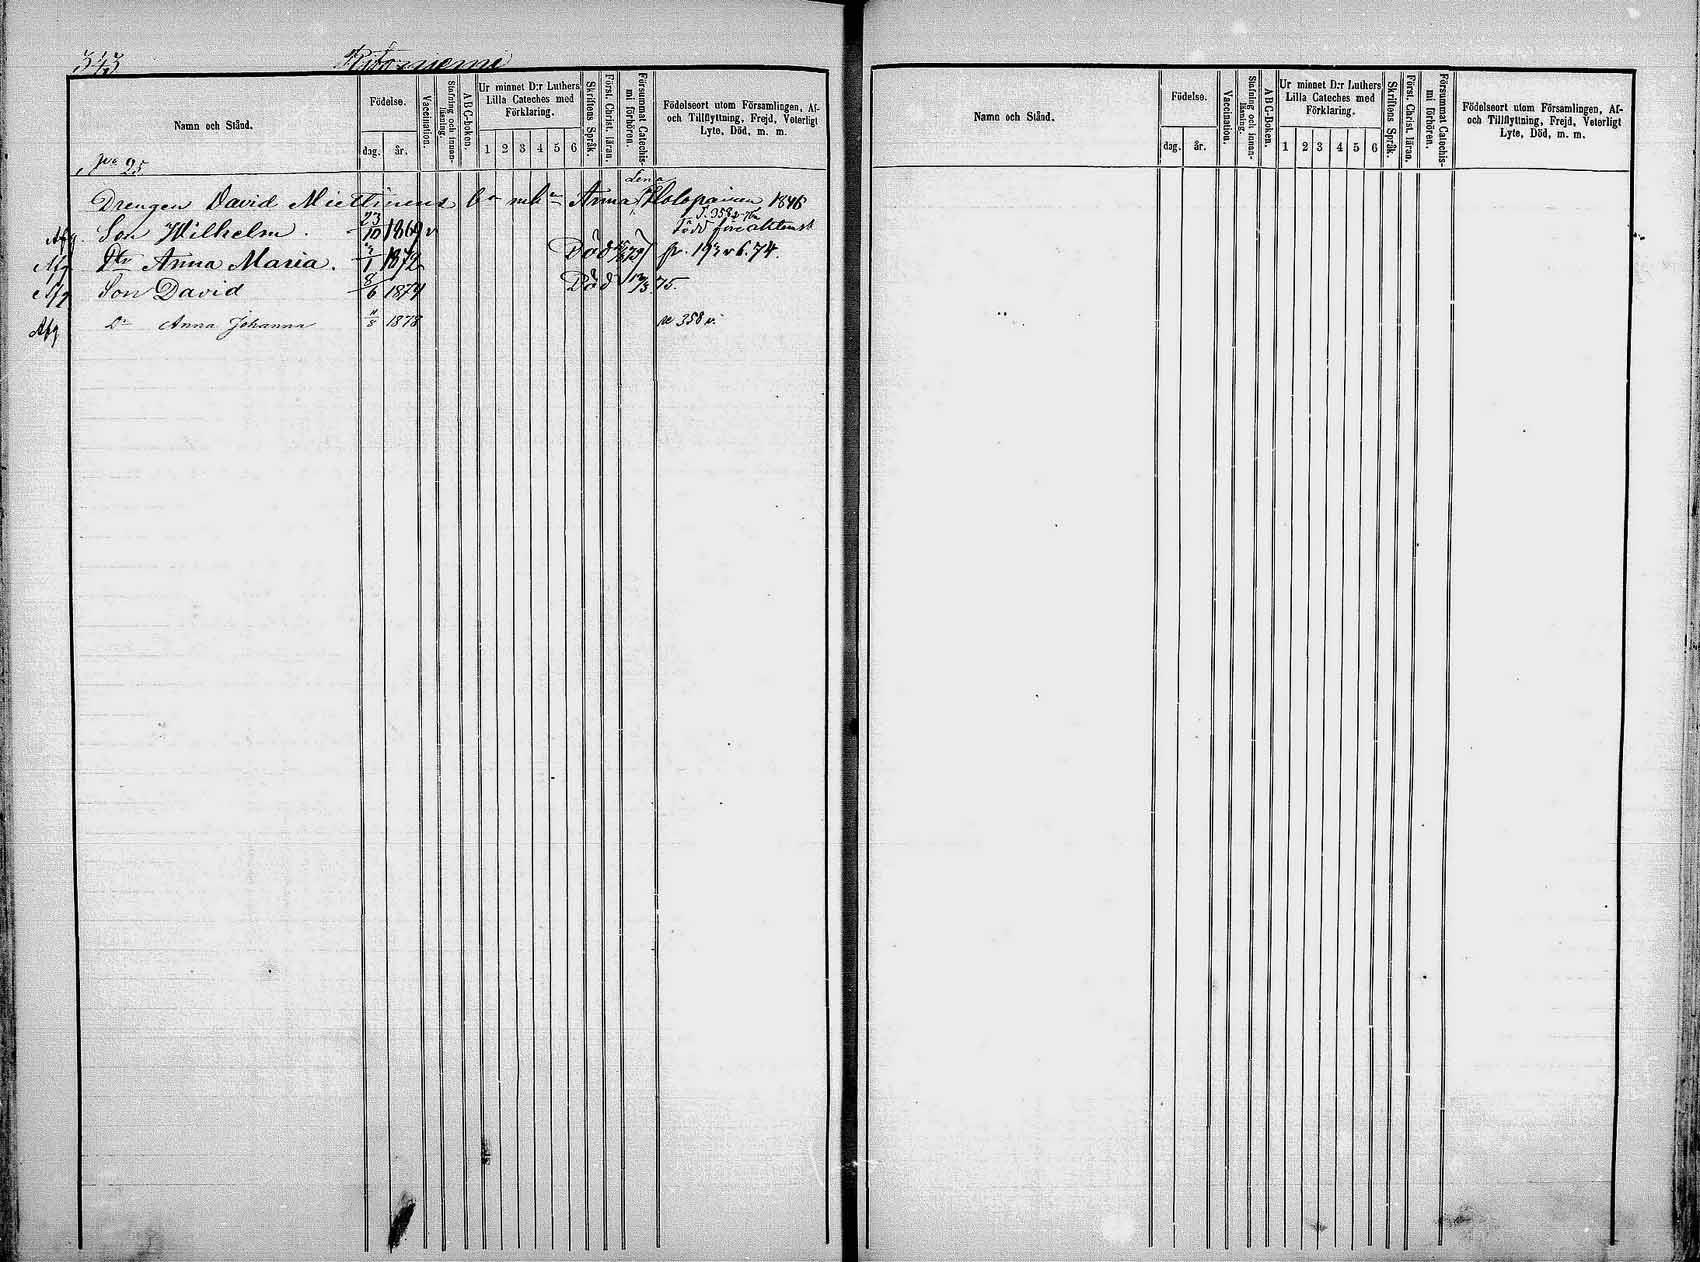 343
Namn och Stånd.
Födelse.
dag. år.
Vaccination.
Stafning och innanläsning.
ABC-boken.
Ur minnet D:r Luthers Lilla Cateches med Förklaring.
1 2 3 4 5 6
Skriftens Språk.
Först. Christ. läran.
Försummat Catechismi förhören.
Födelseort utom Församlingen, Af- och Tillflyttning, Frejd, Veterligt Lyte, Död, m. m.
No 25
Lena
Drengen David Miettinens bn mh Anna Holopainen 1846
Afg. Son Wilhelm. 23/10 1869 v Född före äktensk
Afg Dtr Anna Maria. 1872 Död p. 193 v 6.74.
Afg Son David 8/6 1874 Död 75.
Afg Dr Anna Johanna 11/8 1878 p 358 v.
Namn och Stånd.
Födelse.
dag. år.
Vaccination.
Stafning och innanläsning.
ABC-Boken.
Ur minnet D:r Luthers Lilla Cateches med Förklaring.
1 2 3 4 5 6
Skriftens Språk.
Först. Christ. läran.
Försummat Catechismi förhören.
Födelseort utom Församlingen, Af- och Tillflyttning, Frejd, Veterligt Lyte, Död, m. m.